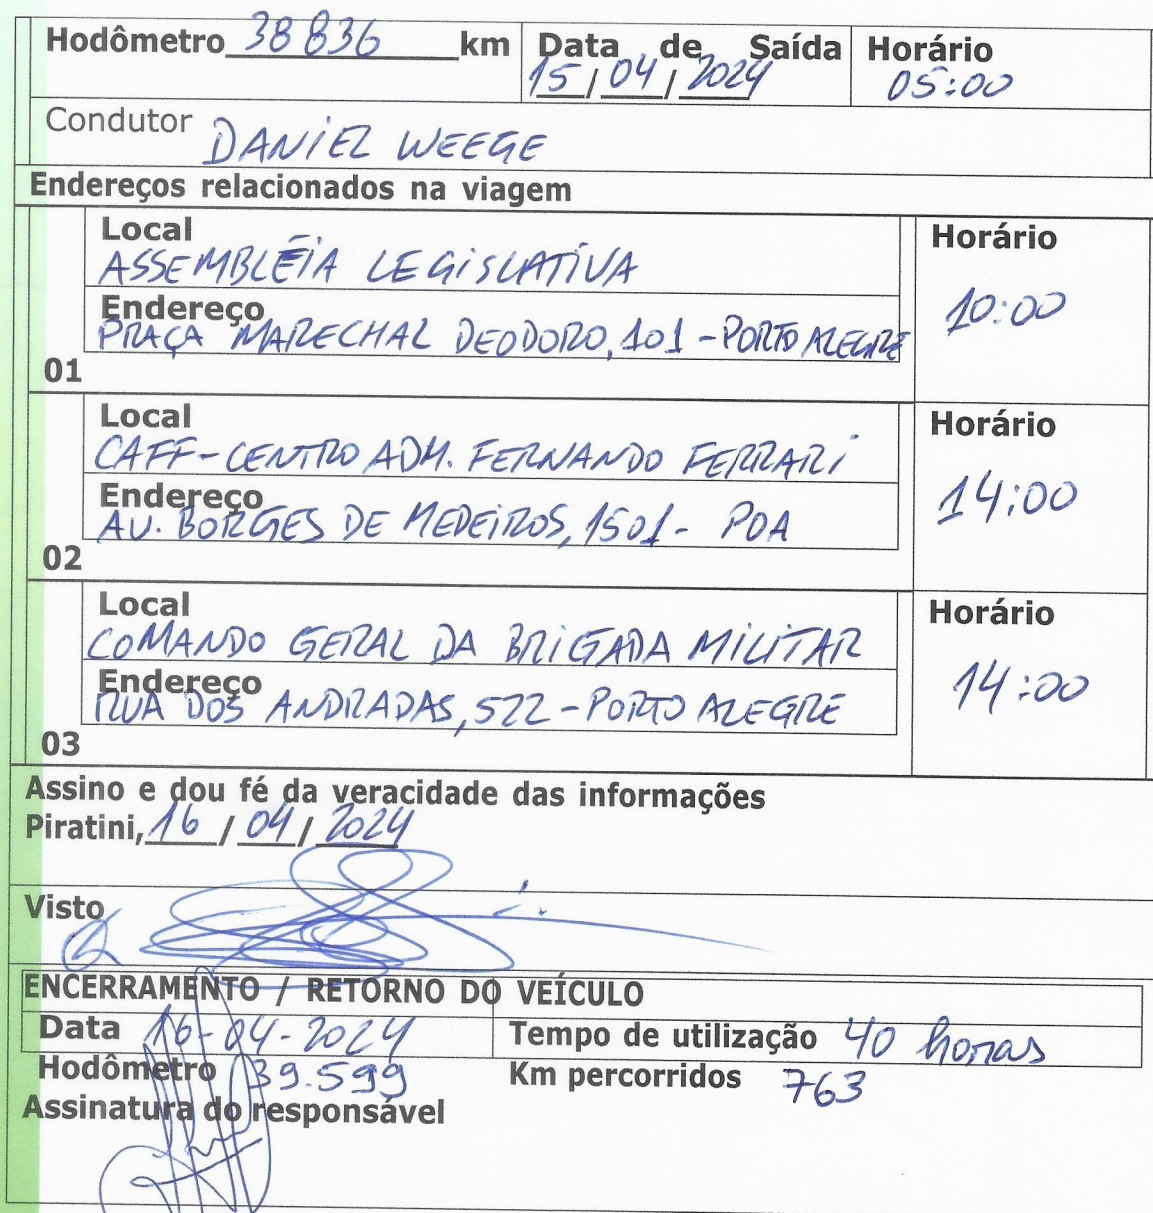 Hodômetro 38 836 km Data de Saída Horário
15/04/2024 05:00
Condutor DANIEL WEEGE
Endereços relacionados na viagem
Local Horário
ASSEMBLÉIA LEGISLATIVA
10:00
Endereço
PRAÇA MARECHAL DEODORO, 101 - PORTO ALEGRE
01
Local Horário
CAFF - CENTRO ADM. FERNANDO FERRARI
14:00
Endereço
AV. BORGES DE MEDEIROS, 1501 - POA
02
Local Horário
COMANDO GERAL DA BRIGADA MILITAR
14:00
Endereço
RUA DOS ANDRADAS, 522 - PORTO ALEGRE
03
Assino e dou fé da veracidade das informações
Piratini, 16 / 04 / 2024
Visto
ENCERRAMENTO / RETORNO DO VEÍCULO
Data 16-04-2024 Tempo de utilização 40 horas
Hodômetro 39.599 Km percorridos 763
Assinatura do responsável